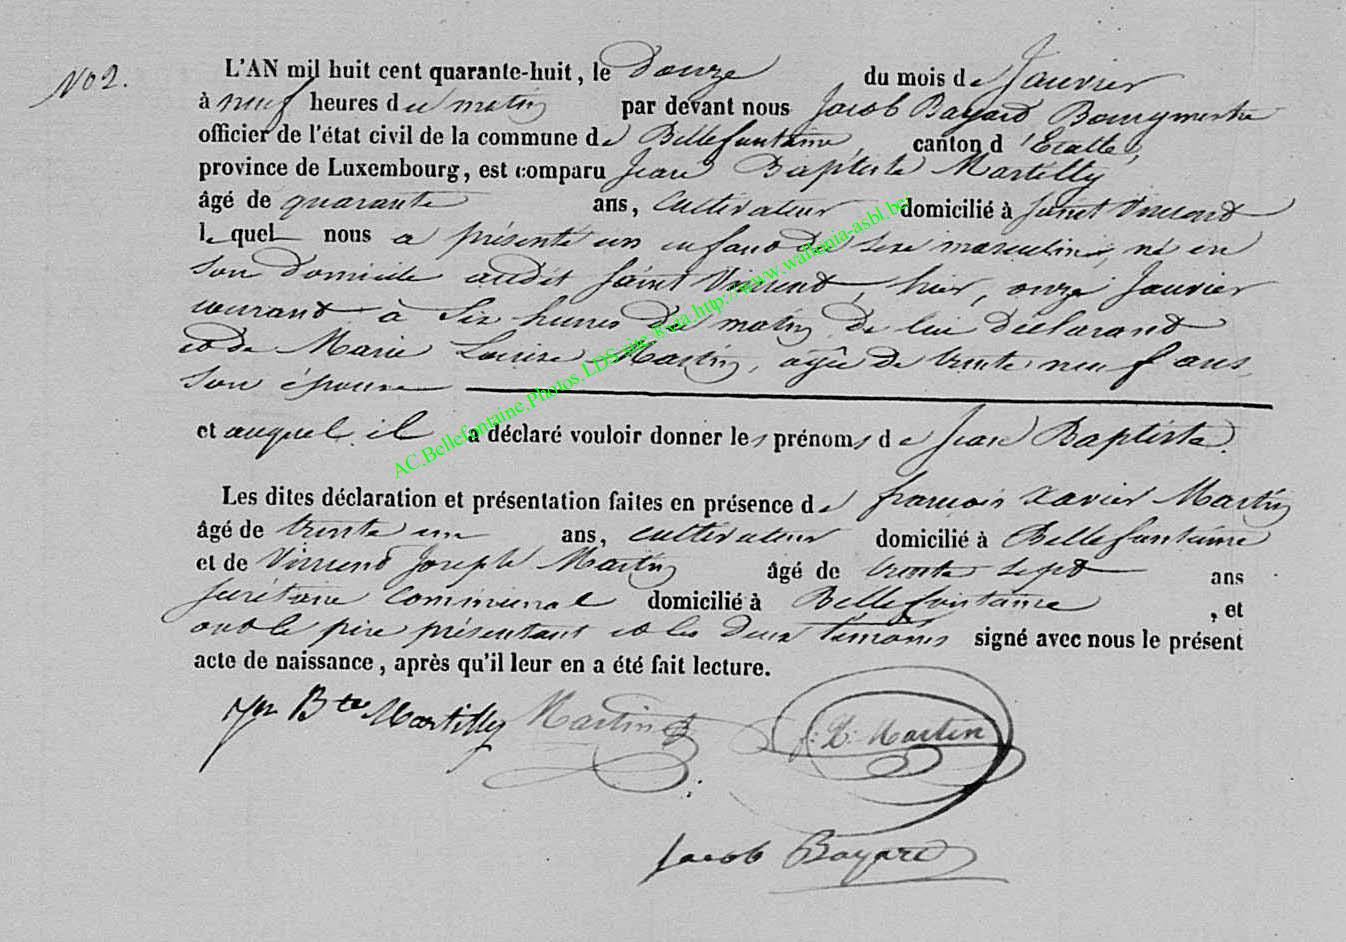 No 2.
L'AN mil huit cent quarante-huit, le Douze du mois de Janvier
à neuf heures du matin par devant nous Jacob Bayard Bourgmestre
officier de l'état civil de la commune de Bellefontaine, canton d'Etalle,
province de Luxembourg, est comparu Jean Baptiste Martilly
âgé de quarante ans, Cultivateur domicilié à Saint Vincent
lequel nous a présenté un enfant de sexe masculin, né en
son domicile audit Saint Vincent, hier, onze Janvier
courant à Six heures du matin, de lui déclarant
et de Marie Louise Martin, agée de trente neuf ans,
son épouse
et auquel il a déclaré vouloir donner les prénoms de Jean Baptiste.
Les dites déclaration et présentation faites en présence de françois Xavier Martin
âgé de trente un ans, cultivateur domicilié à Bellefontaine
et de Vincent Joseph Martin âgé de trente sept ans
Secrétaire Communal domicilié à Bellefontaine, et
ont le père présentant et les deux témoins signé avec nous le présent
acte de naissance, après qu'il leur en a été fait lecture.
Jn Bte Martilly Martin f: X: Martin
Jacob Bayard
AC.Bellefontaine.Photos.LDS.site.&amp;via.http://www.wallonia-asbl.be/